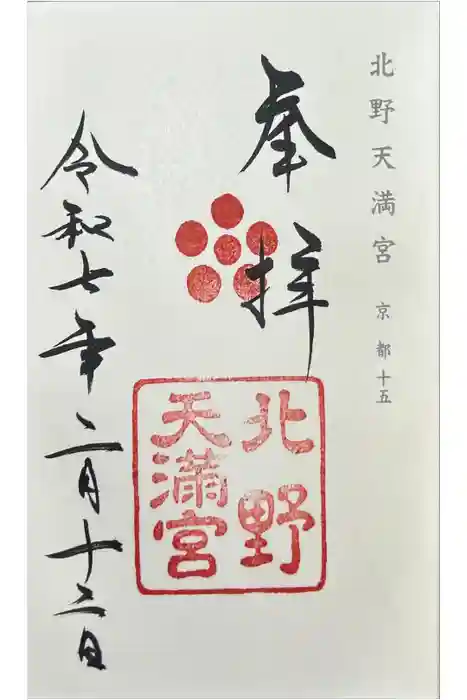 北野天満宮 京都十五
奉拝
北野
天満宮
令和七年二月十二日